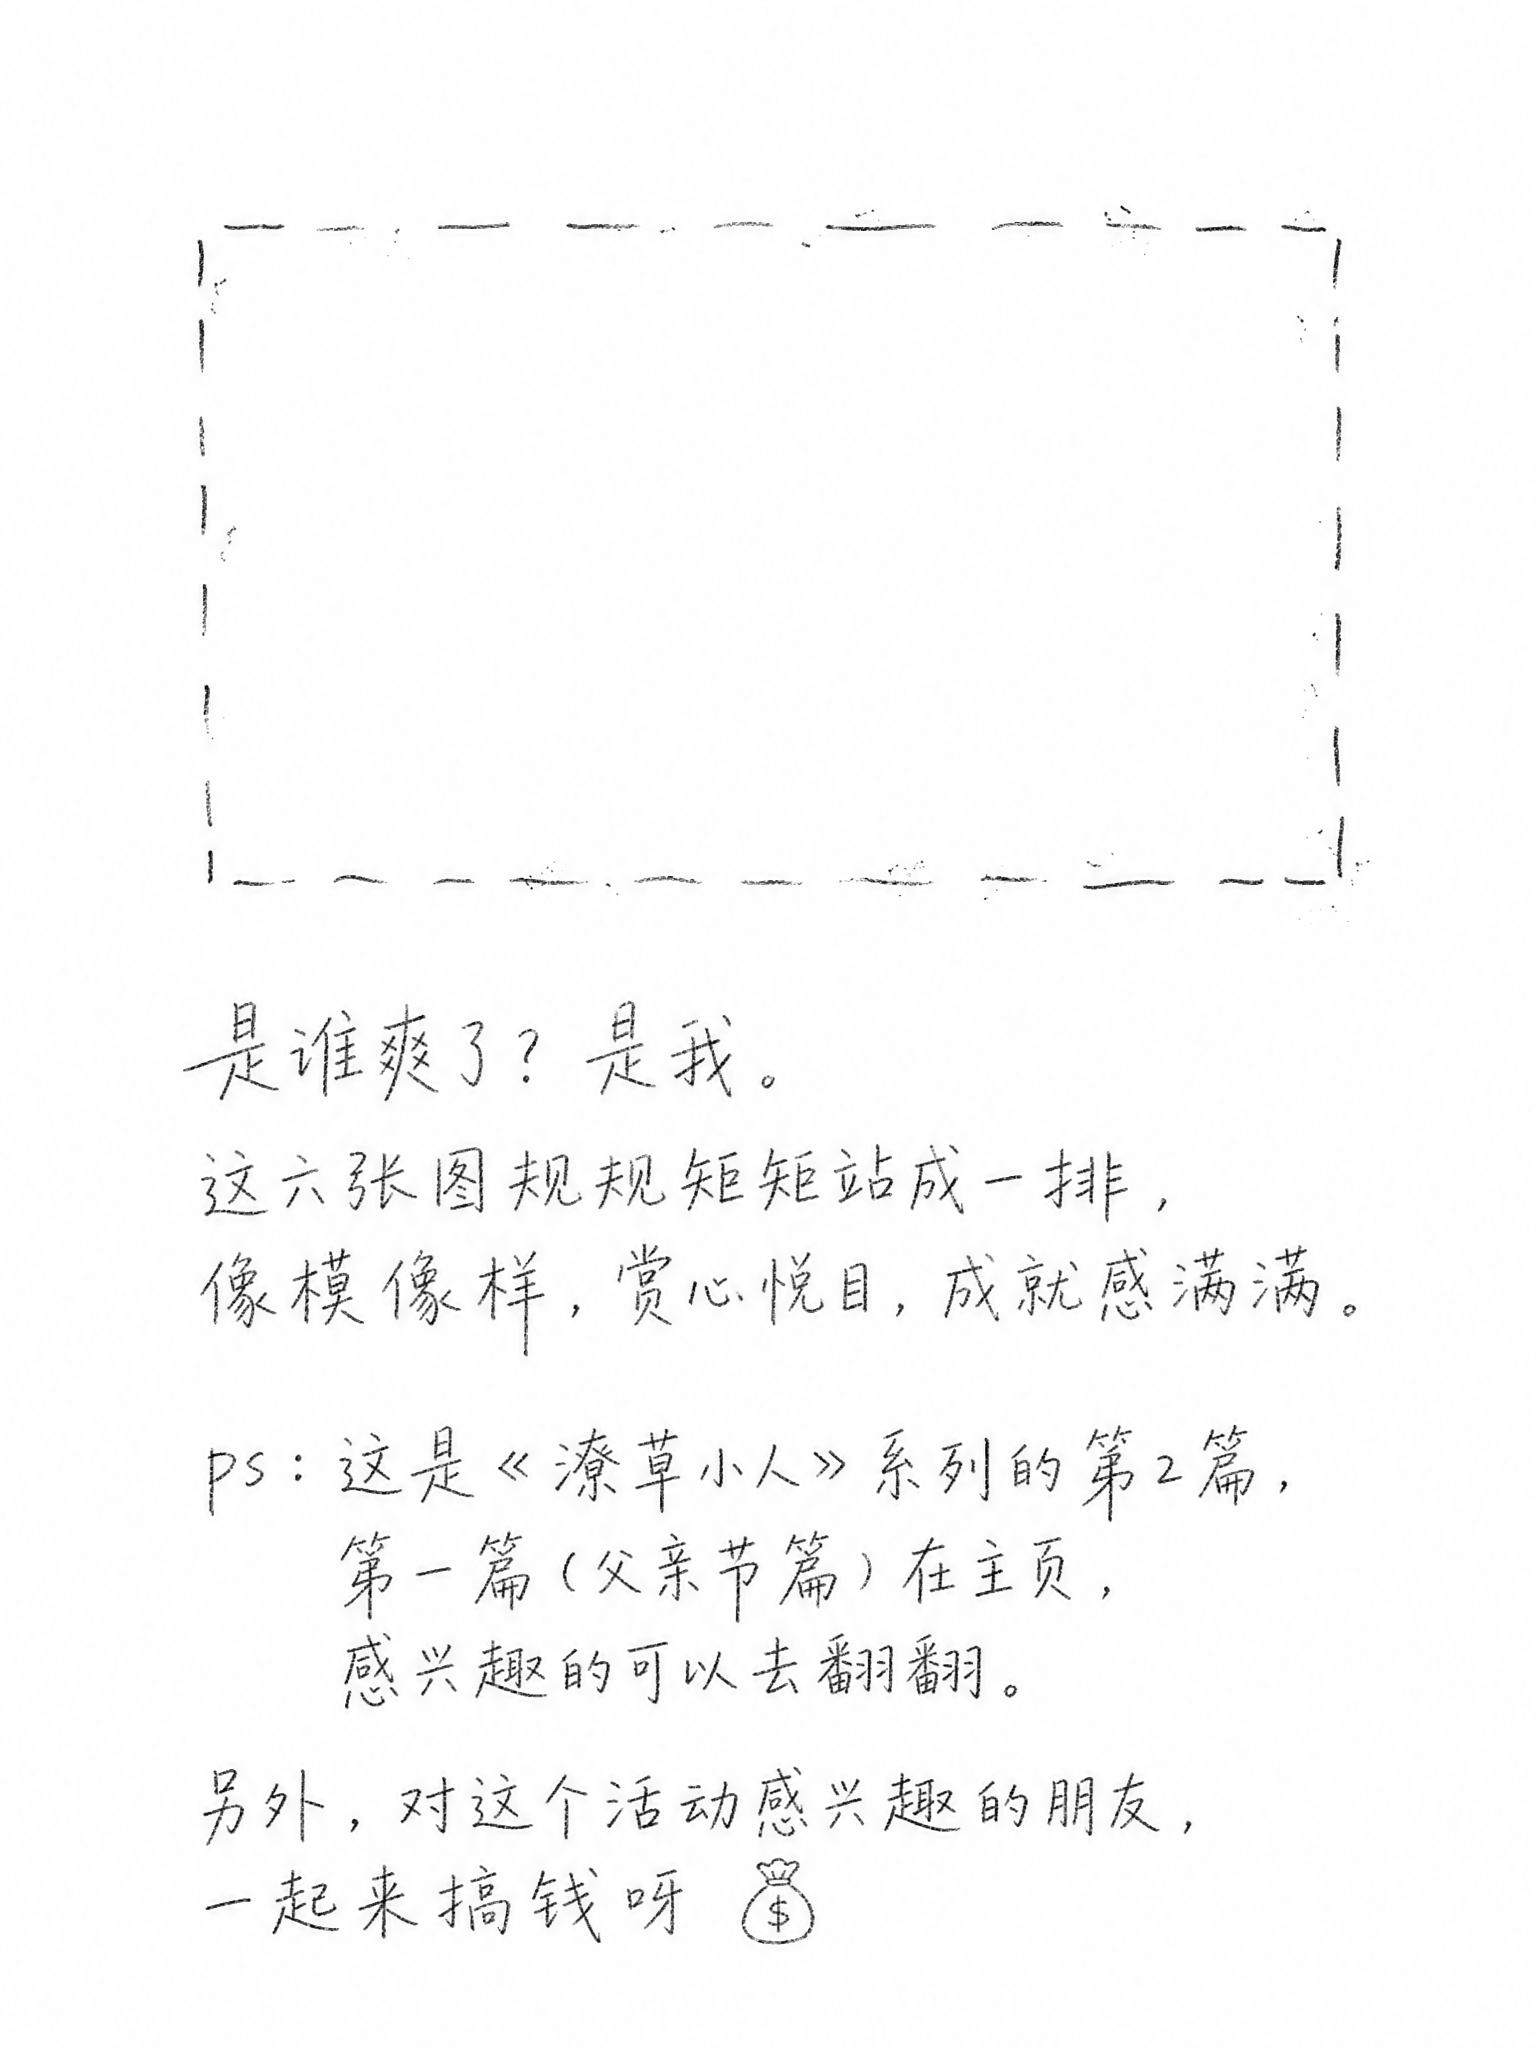 是谁爽了？是我。
这六张图规规矩矩站成一排，
像模像样，赏心悦目，成就感满满。
ps：这是《潦草小人》系列的第2篇，
第一篇（父亲节篇）在主页，
感兴趣的可以去翻翻。
另外，对这个活动感兴趣的朋友，
一起来搞钱呀
$